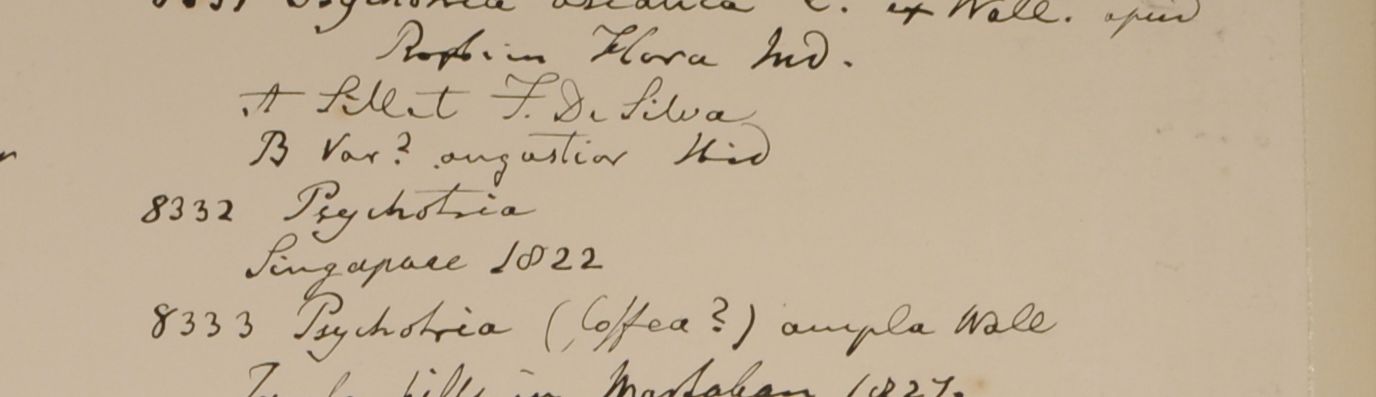 8331 Psychotria asiatica L. ex Wall. apud
Roxb: in Flora Ind.
A Sillet F. De Silva
B Var? angustior Ibid
8332 Psychotria
Singapore 1822
8333 Psychotria (Coffea?) ampla Wall
hills in Martaban 1827.